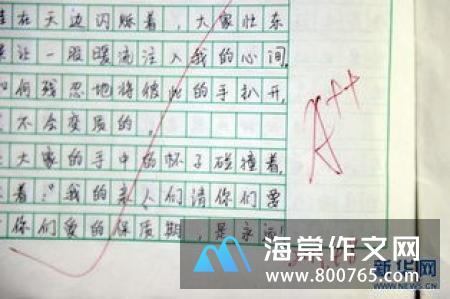 在天边闪烁着，大家肚东
让一股暖流注入我的心间.
何残忍地将彼此的手扒开,
不会变质的.
大家的手中的杯子碰撞着,
着:"我的亲人们请你们爱
你们爱的保质期,是永远!
A++
海棠作文网
www.800765.com
新华网
WWW.NEWS.CN